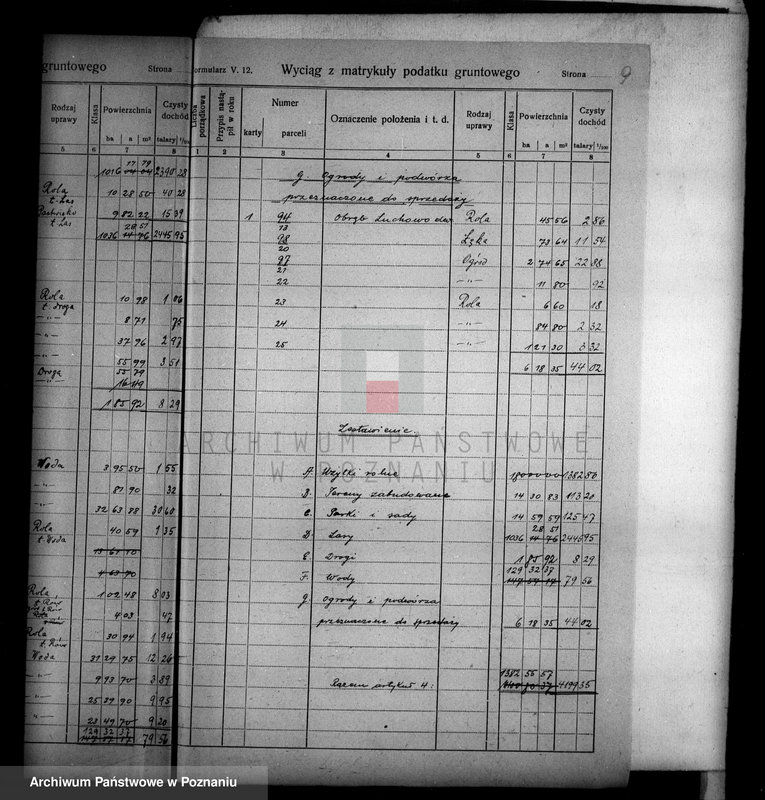 gruntowego Strona
Rodzaj uprawy Klasa Powierzchnia Czysty dochód
ha a m² talary 1/100
5 6 7 8
17 79
1016 04 04 2390 28
Rola 10 28 50 40 28
t. Las
Pastwisko 9 82 22 15 39
t. Las
28 51
1036 14 76 2445 95
Rola 10 98 1 06
t. droga
-"- 8 71 75
-"- 37 96 2 97
-"- 55 99 3 51
Droga 55 79
-"- 16 49
1 85 92 8 29
Woda 3 95 50 1 55
-"- 81 90 32
-"- 32 63 88 30 60
Rola 40 59 1 35
t. Woda
13 61 70
1 63 70
Rola 1 02 48 8 03
t. Rów
4 03 47
Rola 30 94 1 94
t. Rów
Woda 31 29 75 12 26
-"- 9 93 70 3 89
-"- 25 39 90 9 95
-"- 23 49 70 9 20
129 32 37
147 17 17 79 56
Formularz V. 12. Wyciąg z matrykuły podatku gruntowego Strona 9
Liczba porządkowa Przypis nastąpił w roku Numer Oznaczenie położenia i t. d. Rodzaj uprawy Klasa Powierzchnia Czysty dochód
karty parceli ha a m² talary 1/100
1 2 3 4 5 6 7 8
g. Ogrody i podwórza
przeznaczone do sprzedaży
1 94 Obręb Luchowo dw. Rola 45 56 2 86
13
98 Łąka 73 64 11 54
20
97 Ogród 2 74 65 22 88
21
22 -"- 11 80 92
23 Rola 6 60 18
24 -"- 84 80 2 32
25 -"- 1 21 30 3 32
6 18 35 44 02
Zestawienie.
A. Użytki rolne 1382 50
B. Tereny zabudowane 14 30 83 113 20
C. Parki i sady 14 59 59 125 47
28 51
D. Lasy 1036 14 76 2445 95
E. Drogi 1 85 92 8 29
129 32 37
F. Wody 147 17 17 79 56
g. Ogrody i podwórza
przeznaczone do sprzedaży 6 18 35 44 02
1382 55 57
Razem artykuł 4: 4199 35
ARCHIWUM PAŃSTWOWE
W POZNANIU
Archiwum Państwowe w Poznaniu